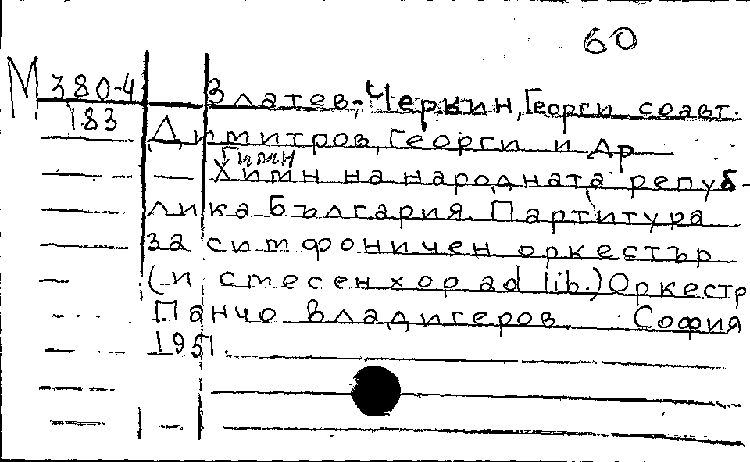 60
М 380-4 Златев-Черкин, Георги соавт.
183 Димитров, Георги и др
Гимн
Химн на народната репуб-
лика България. Партитура
за симфоничен оркестър
(и смесен хор ad lib.) Оркестр
Панчо Владигеров. София
1951.